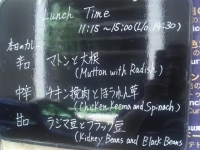 Lunch Time
11:15～15:00 (L/o 14:30)
本日のカレー
辛口 マトンと大根
(Mutton with Radish)
中辛 チキン挽肉とほうれん草
(Chicken Keema and Spinach)
甘口 ラジマ豆とブラック豆
(Kidney Beans and Black Beans